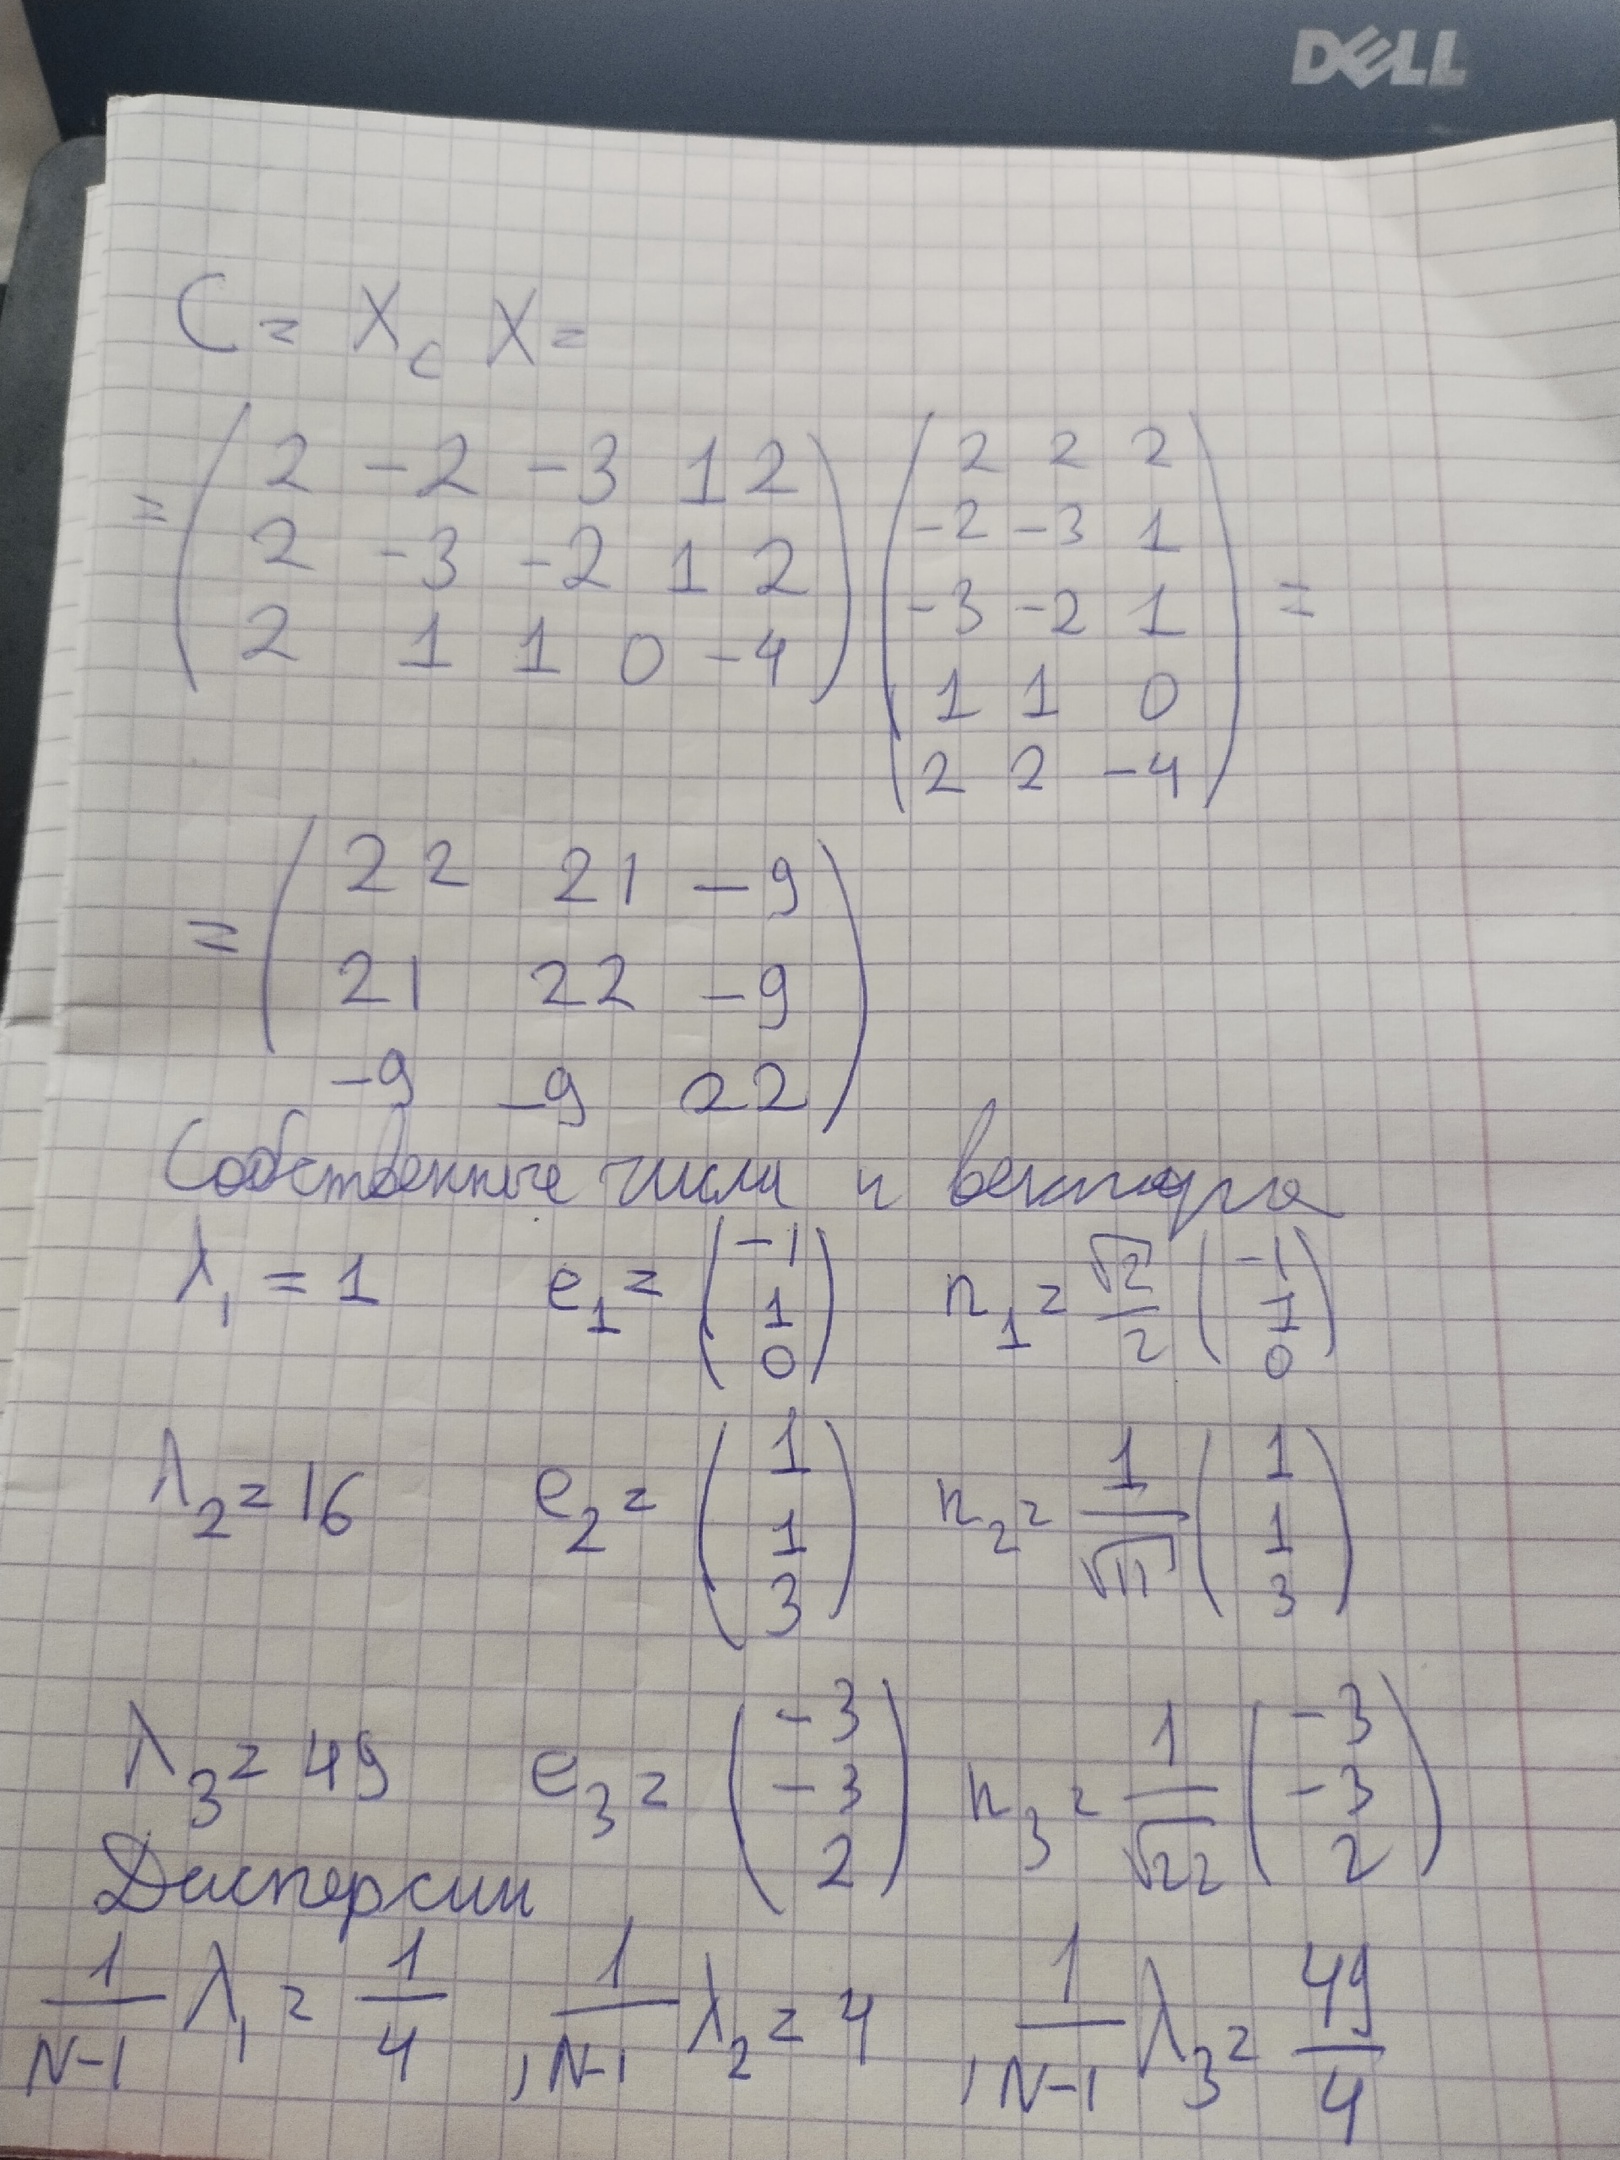 DELL
C = X_c X =
= ( 2 -2 -3 1 2 ) ( 2 2 2 )
2 -3 -2 1 2   -2 -3 1
2 1 1 0 -4   -3 -2 1 =
1 1 0
2 2 -4
= ( 22 21 -9 )
21 22 -9
-9 -9 22
Собственные числа и вектора
λ₁ = 1 e₁ = (-1 1 0) n₁ = √2/2 (-1 1 0)
λ₂ = 16 e₂ = (1 1 3) n₂ = 1/√11 (1 1 3)
λ₃ = 49 e₃ = (-3 -3 2) n₃ = 1/√22 (-3 -3 2)
Дисперсии
1/(N-1) λ₁ = 1/4 , 1/(N-1) λ₂ = 4 , 1/(N-1) λ₃ = 49/4